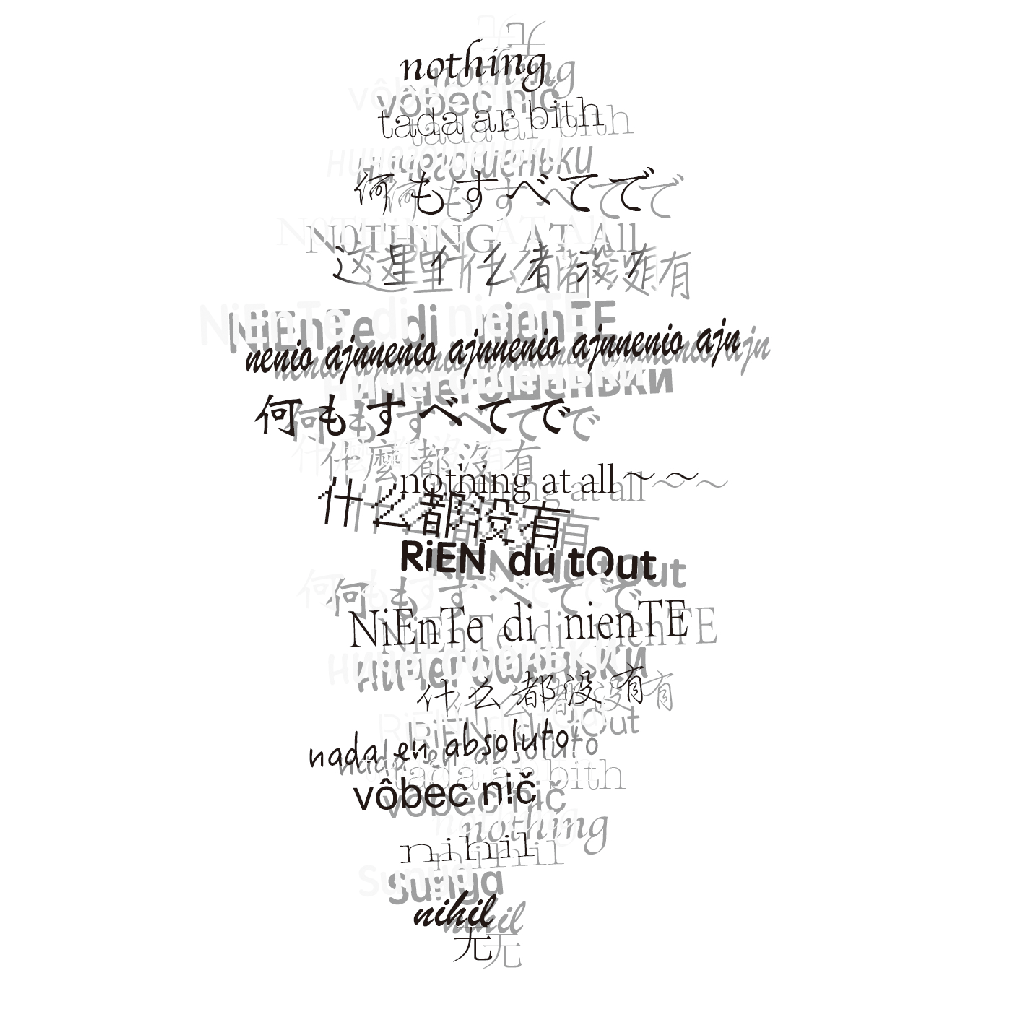 nothing
vôbec nič
tada ar bith
ничегошеньки
何もすべてで
NOTHiNG AT All
这里什么都没有
NiEnTe di nienTE
nenio ajnnenio ajnnenio ajnnenio ajn
ничегошеньки
何もすべてで
什麼都沒有
nothing at all~~
什么都没有
RiEN du tOut
何もすべてで
NiEnTe di nienTE
ничегошеньки
什么都没有
RiEN du tOut
nada en absoluto
tada ar bith
vôbec nič
nothing
nihil
Sunya
nihil
无